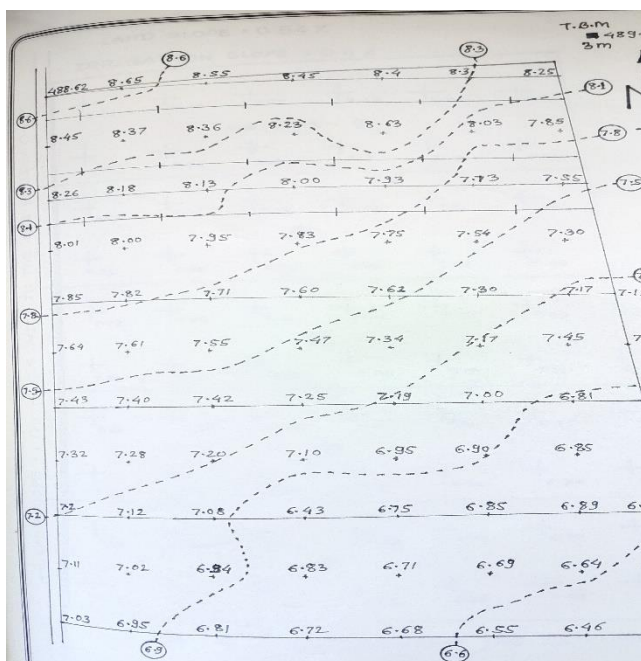 T.B.M
489.
3m
8.6 8.3
488.62 8.65 8.55 8.45 8.4 8.3 8.25
8.6 8.1
8.45 8.37 8.36 8.23 8.63 8.03 7.85
7.8
8.3 8.26 8.18 8.13 8.00 7.93 7.73 7.55
7.5
8.1
8.01 8.00 7.95 7.83 7.75 7.54 7.30
7.85 7.82 7.71 7.60 7.62 7.30 7.17 7.1
7.8
7.64 7.61 7.55 7.47 7.34 7.17 7.45 7
7.5
7.43 7.40 7.42 7.25 7.19 7.00 6.81
7.32 7.28 7.20 7.10 6.95 6.90 6.85
7.2 7.2 7.12 7.08 6.43 6.75 6.85 6.89 6.
7.11 7.02 6.94 6.83 6.71 6.69 6.64
7.03 6.95 6.81 6.72 6.68 6.55 6.46
6.9 6.6